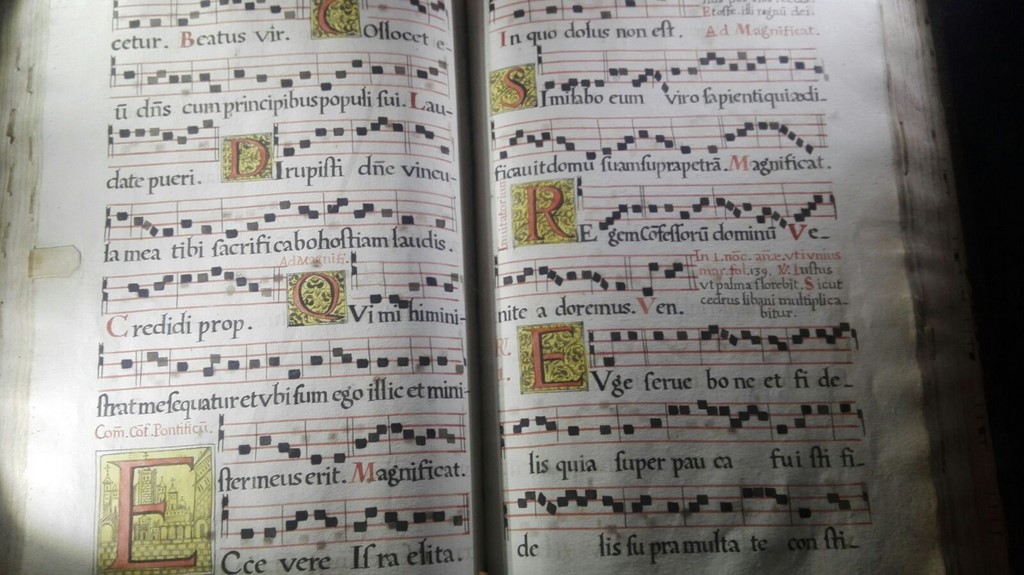 cetur. Beatus vir. COllocet e-
ū dn̄s cum principibus populi sui. Lau-
date pueri. DIrupisti dn̄e vincu-
la mea tibi sacrificabo hostiam laudis.
Ad Magnifi.
Credidi prop. QVi mi himini-
strat me sequatur et vbi sum ego illic et mini-
Com̄. Cōf. Pontificū.
ster meus erit. Magnificat.
ECce vere Israelita.
Et osse. illi regnū dei.
In quo dolus non est. Ad Magnificat.
SImilabo eum viro sapienti qui ædi-
ficauit domū suam supra petrā. Magnificat.
Inuitatorium
REgem Cōfessorū dominū Ve-
In I. noc. anæ. vt in vnius
mar. fol. 139. ℣. Iustus
vt palma florebit. Sicut
cedrus libani multiplica-
bitur.
nite a doremus. Ven.
EVge serue bone et fi de-
lis quia super pau ca fui sti fi-
de lis su pra multa te con sti-